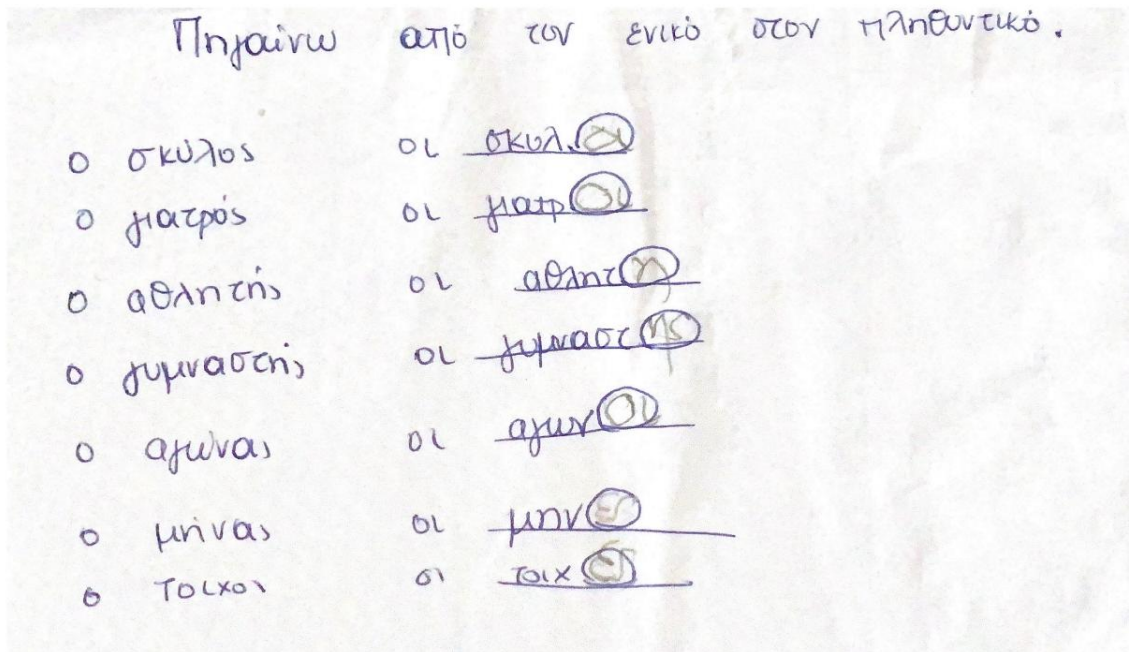 Πηγαίνω από τον ενικό στον πληθυντικό.
ο σκύλος οι σκυλ.οι
ο γιατρός οι γιατροι
ο αθλητής οι αθλητη
ο γυμναστής οι γυμναστης
ο αγώνας οι αγωνοι
ο μήνας οι μηνες
ο τοιχοι οι τοιχες